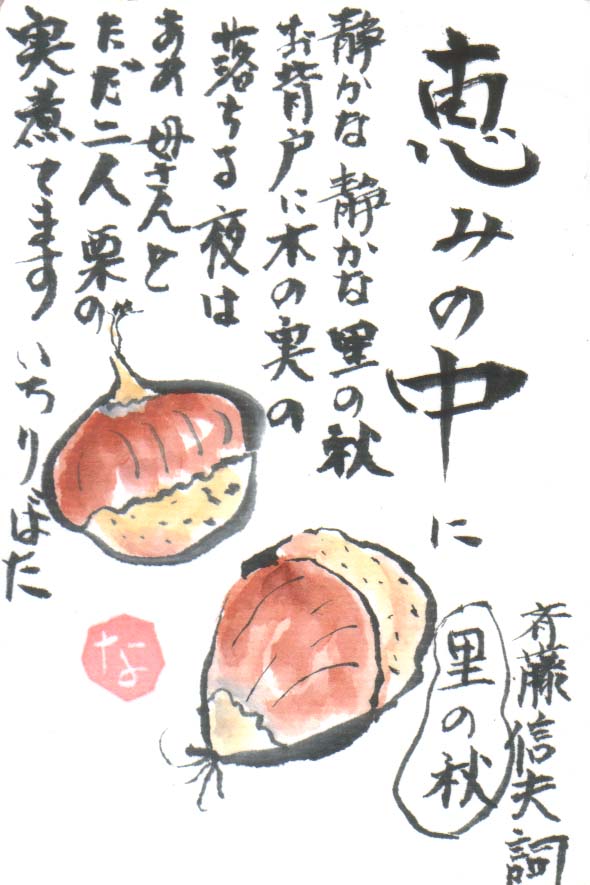 恵みの中に
静かな静かな里の秋
お背戸に木の実の
落ちる夜は
ああ母さんと
ただ二人栗の
実煮てます いちりばた
斉藤信夫詞
里の秋
な